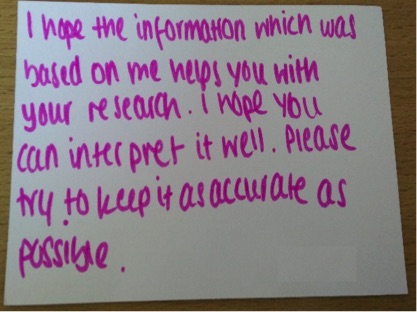 I hope the information which was
based on me helps you with
your research. i hope you
can interpret it well. Please
try to keep it as accurate as
possible.